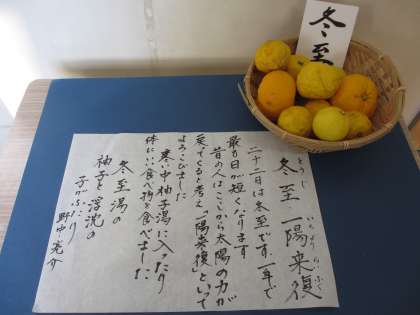 冬至
とうじ いちようらいふく
冬至 一陽来復
二十二日は冬至です。一年で
最も日が短くなります
昔の人はここから太陽の力が
戻ってくると考え「一陽来復」といって
よろこびました
寒い中柚子湯に入ったり
体にいい食べ物を食べました
冬至湯の
柚子と浮沈の
子がふたり
野中亮介